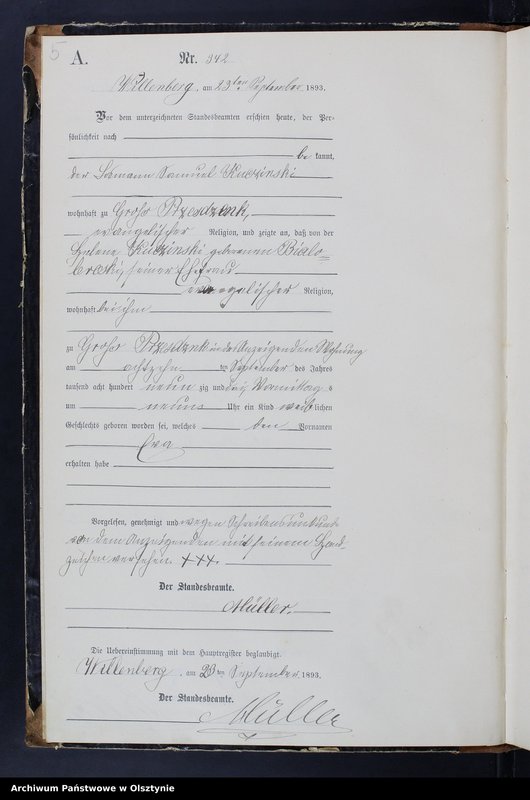 5
A.
Nr. 342
Willenberg, am 23ten September 1893.
Vor dem unterzeichneten Standesbeamten erschien heute, der Per-
sönlichkeit nach
be kannt,
der Samuel Kuczinski
wohnhaft zu Groß Przesdzenk,
evangelischer Religion, und zeigte an, daß von der
Helene Kuczinski geborenen Bialo-
seiner Ehefrau
evangelischer Religion,
wohnhaft bei ihm
zu Groß Przesdzenk in des Anzeigenden Wohnung
am achtzehn ten September des Jahres
tausend acht hundert neun zig und drei Vormittag s
um neun Uhr ein Kind weib lichen
Geschlechts geboren worden sei, welches den Vornamen
Eva
erhalten habe
Vorgelesen, genehmigt und wegen Schreibensunkunde
von dem Anzeigenden mit seinem Hand-
zeichen versehen. +++.
Der Standesbeamte.
Müller.
Die Uebereinstimmung mit dem Hauptregister beglaubigt.
Willenberg, am 23ten September 1893.
Der Standesbeamte.
Müller
Archiwum Państwowe w Olsztynie